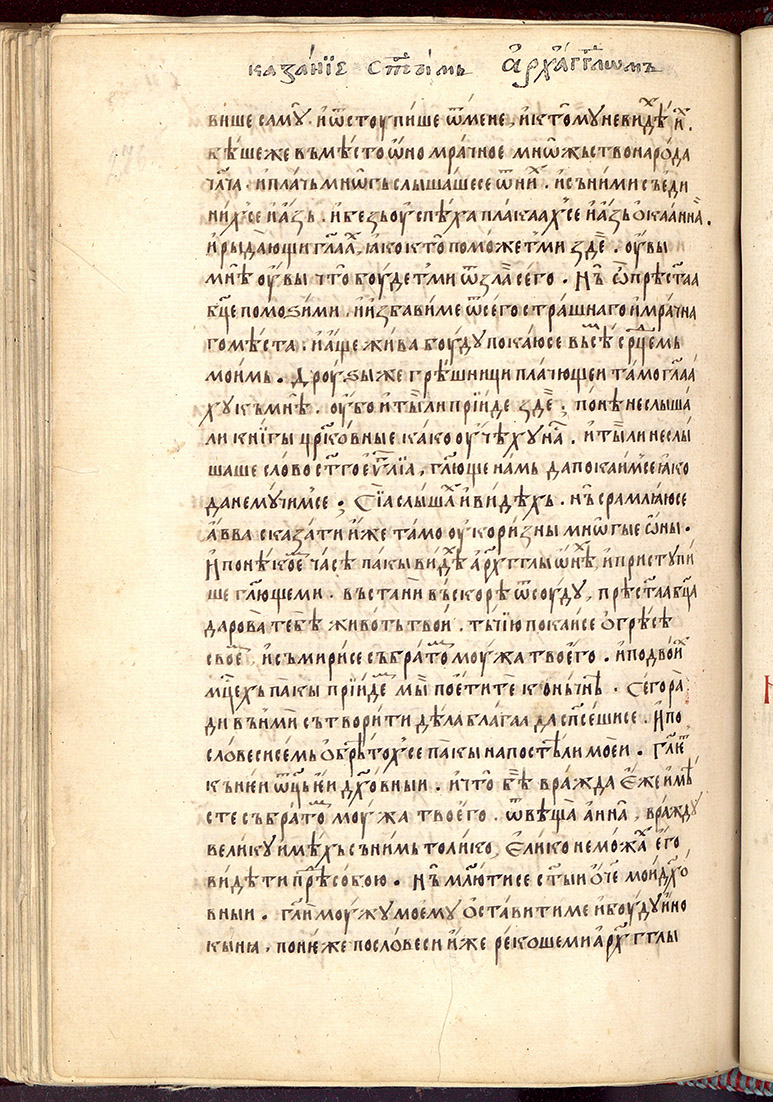 казанїе ст҃ымь а҆рха́гг҃лѡмь
ви́ше самꙋ̀ . и҆ ѿстоупи́ше ѿ мене , и҆ к томꙋ не ви́дѣхь и҆х .
бѣ́ше же въ мѣ́сто ѡ҆но мра́чное мнѡ́жьство наро́да
чл҃ча . и҆ пла́чь мнѡ́гь слы́шаше се ѿ ни́х . и҆ съ ни́ми съеди
ни́х се и҆ а҆зь . и҆ без оу҆спѣ́ха пла́каах се и҆ а҆зь ѻ҆каа́ннаа .
и҆ рыда́ющи гл҃аах , ꙗ҆ко кто̀ помо́жет ми здѐ . оу҆вы̀
мнѣ̀ оу҆вы̀ что̀ боу́дет ми ѿ зла̀ сего . нь ѽ прѣст҃аа
бц҃е помоѕѝ ми . и҆ и҆зба́ви ме ѿ сего стра́шнаго и҆ мра́чна
го мѣ́ста . и҆ а҆ще жи́ва боу́ду пока́ю се въсѣ́мь ср҃цемь
мои́мь . дроуѕы́ же грѣ́шници пла́чющеи та́мо гл҃аа
хꙋ къ мнѣ̀ . оу҆бо и҆ ты̀ ли прїи́де здѐ . понѣ̀ не слы́ша
ли кни́гы цр҃ко́вные ка́ко оу҆чѣ́хꙋ на́с . и҆ ты̀ ли не слы́
шаше сло́во ст҃го еѵ҃лїа , гл҃юще на́мь да пока́им се ꙗ҆ко
да не мꙋ́чим се ; сїа слы́шах и҆ ви́дѣхь . нь срамлꙗ́ю се
а҆вва сказа́ти и҆же та́мо оу҆кори́зны мнѡ́гые ѡ҆ны .
и҆ по нѣ́коем ча́сѣ па́кы ви́дѣх а҆рхгг҃лы ѡ҆нѣ́х , и҆ присту́пи
ше гл҃юще ми . въста́ни въ ско́рѣ ѿсоу́дꙋ , прѣст҃аа бц҃а
дарова̀ тебѣ живо́ть тво́и . тъ́чїю пока́и се ѻ҆ грѣсѣ̀
свое́м , и҆ съмири́ се съ бра́том моу́жа твое́го . и҆ по двои́х
мц҃ехь па́кы прїи́дем мы̀ пое́ти те коньчнѣ̀ . сего ра́
ди въни́ми сътвори́ти дѣ́ла бл҃агаа да сп҃се́ши се . и҆ по
словеси се́мь ѻ҆брѣто́х се па́кы на посте́ли мое́и . гл҃а
къ не́и ѿц҃ь е҆и дх҃о́вныи . и҆ что̀ бѣ̀ вра́жда е҆же и҆мѣ́
сте съ бра́том моу́жа твое́го . ѿвѣща̀ а҆нна̀ , вра́ждꙋ
вели́кꙋ и҆мѣ́хь с ни́мь то́лико , е҆ли́ко не мо́жах е҆го̀
ви́дѣти прѣ́д собо́ю . нь мл҃ю ти се ст҃ыи ѻ҆ч҃е мо́и дх҃о́
вныи . гл҃и моу́жꙋ мое́мꙋ ѻ҆ста́вити ме и҆ боу́дꙋ и҆но
кы́нꙗ , поне́же по словеси и҆же реко́ше ми а҆рхгг҃лы